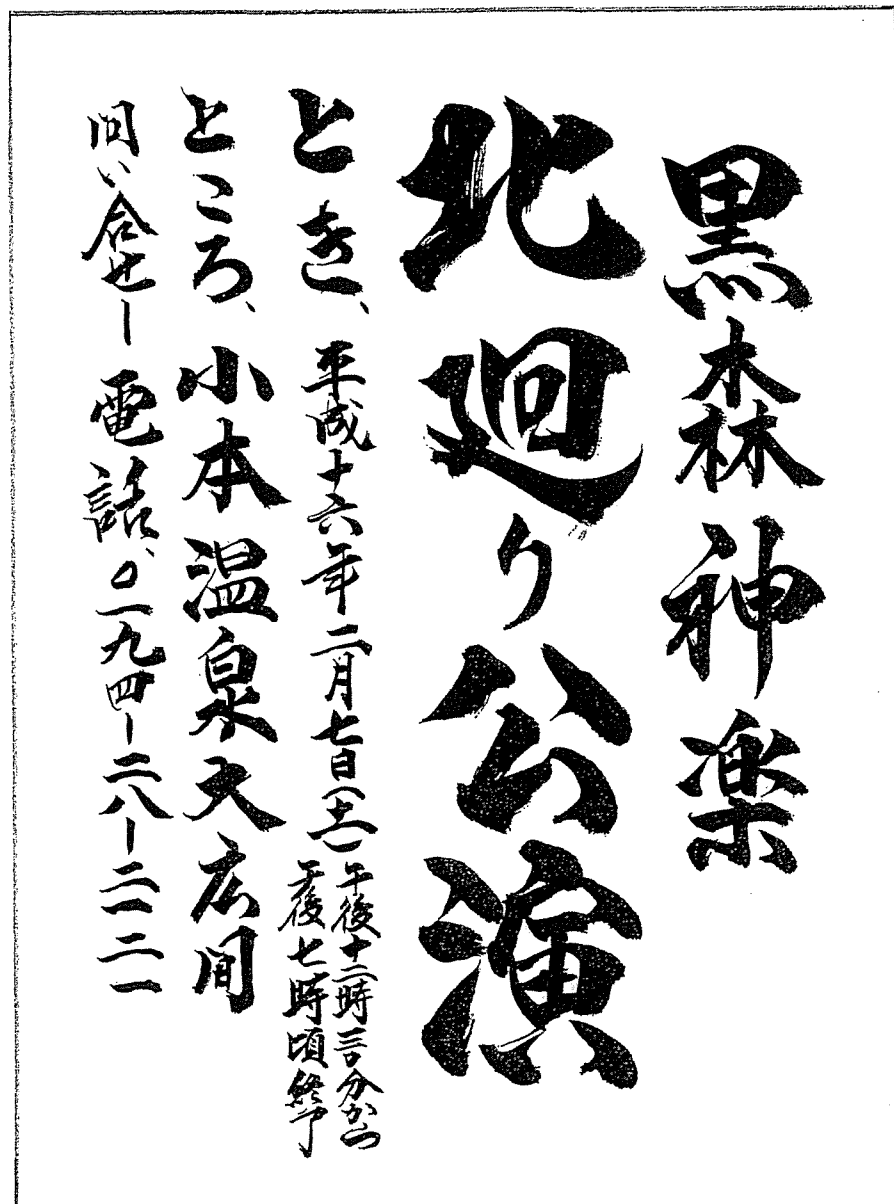 黒森神楽
北廻り公演
とき、平成十六年二月七日(土)
午後十二時三〇分から
午後七時頃終了
ところ、小本温泉大広間
問い合せー電話、〇一九四ー二八ー二一二一